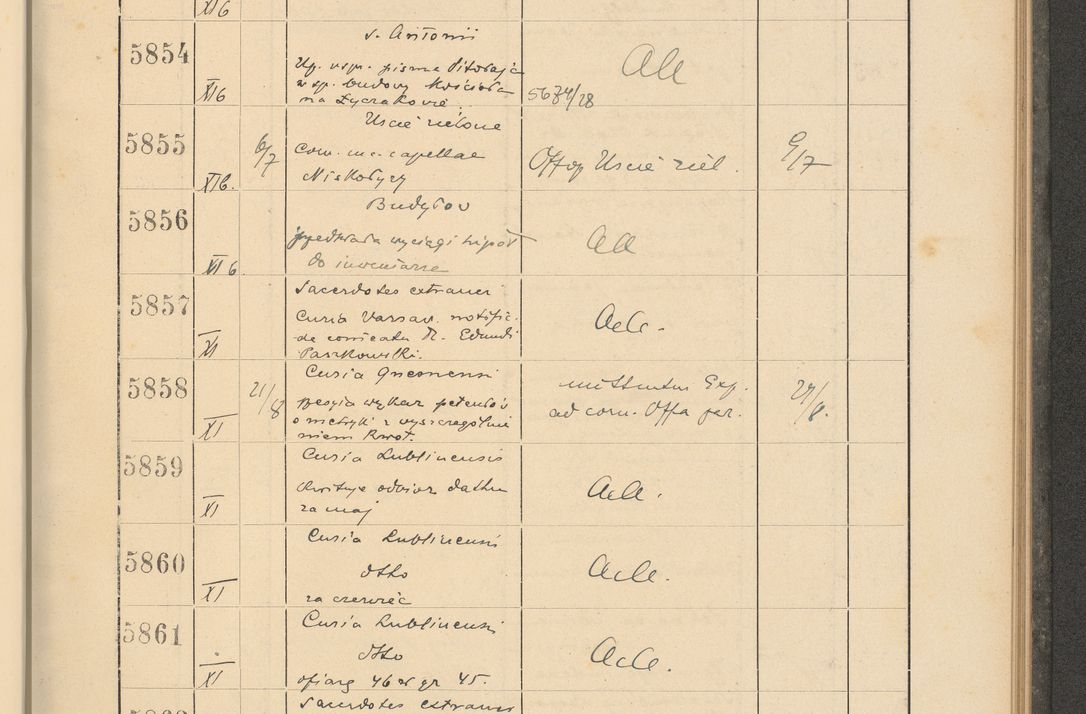 XI6
5854
XI6
s. Antonii
w sp. budowy Kościoła
na Łyczakowie
Ale
5674/28
5855
XI6.
6/7
Uscie zielone
com. me. capellae
Niskołyzy
Offop Uscie ziel.
9/7
5856
XI 6
Budyłov
przedkłada wyciągi hipot
do inwentarza
Ali
5857
XI
Sacerdotes extranei
Curia Varsav. notific.
de comeatu R. Edundi
Paszkowski.
Acle.
5858
XI
21/8
Curia Gnesnensi
pesyła wykaz petentów
o metryki z wyszczególnie
niem kwot.
mittuntur Exp.
ad com. Offa par.
5859
XI
Curia Lublinensis
kwituje odbiór datku
za maj
Acle.
5860
XI
Curia Lublinensis
dtto
za czerwiec
Acle.
5861
XI
Curia Lublinensi
dtto
ofiarę 46 zł gr 45.
Acle.
5862
Sacerdotes extranei